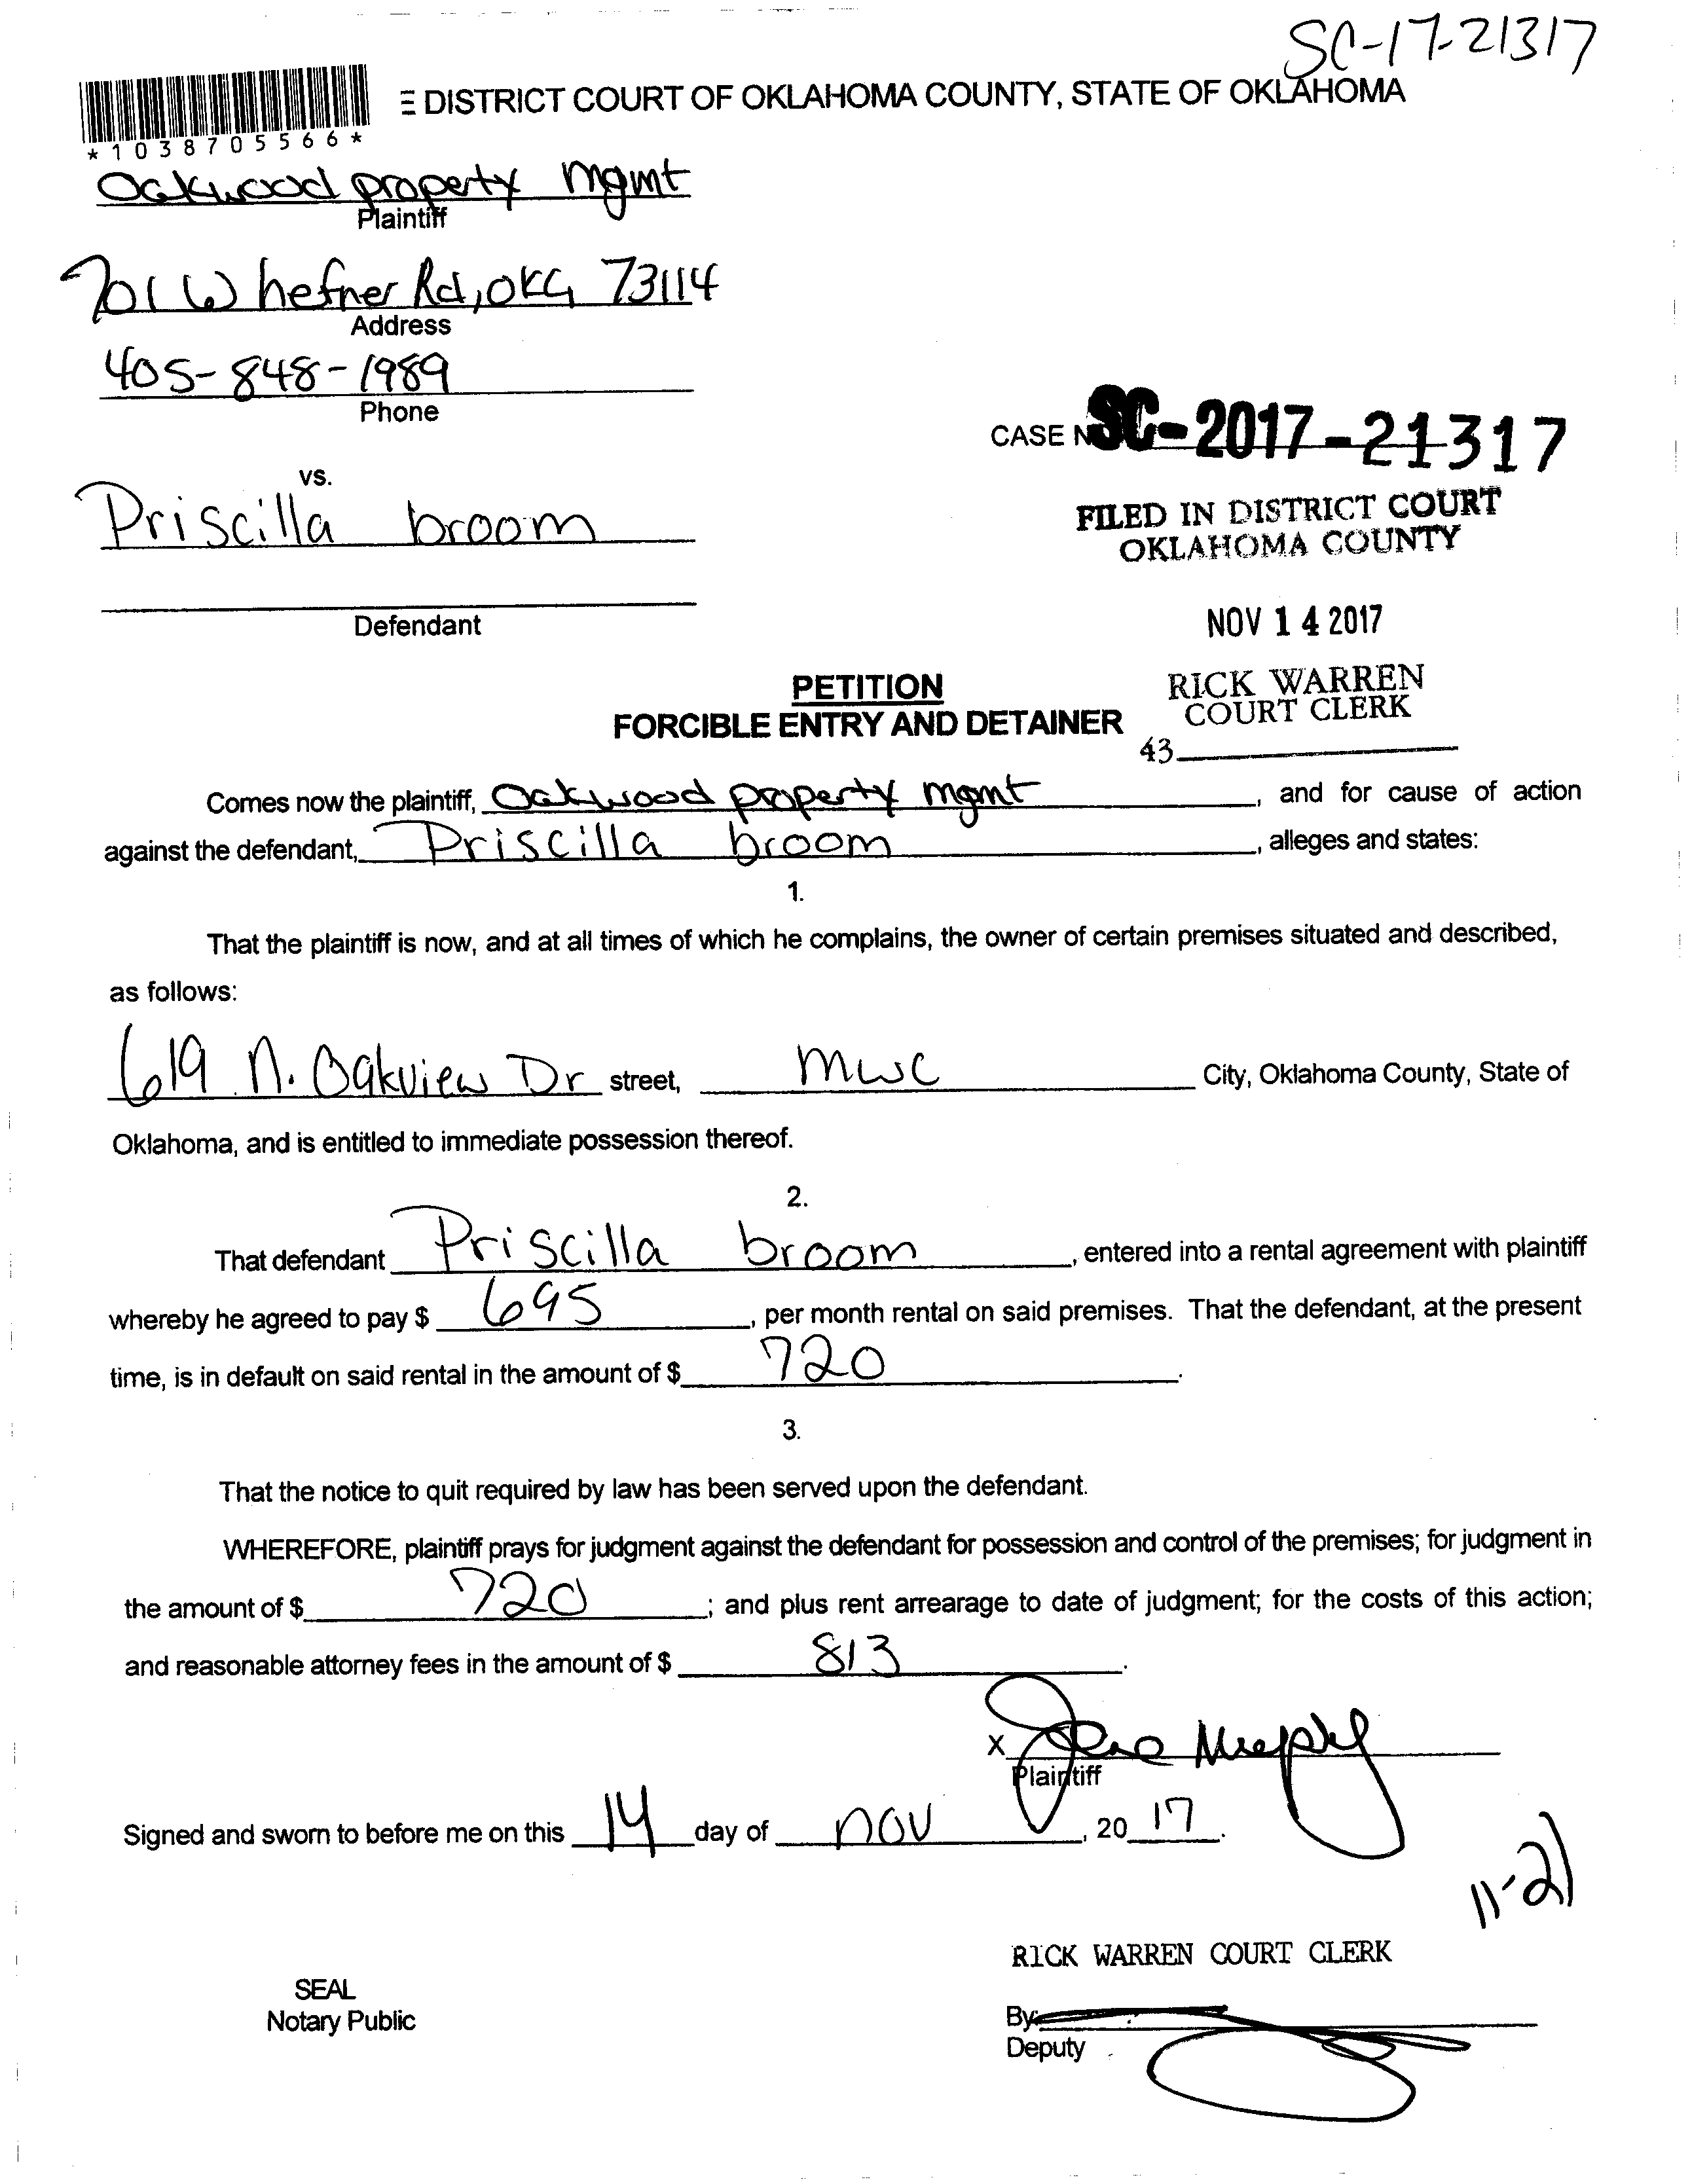 SC-17-21317
E DISTRICT COURT OF OKLAHOMA COUNTY, STATE OF OKLAHOMA
*1038705566*
Oakwood property mgmt
Plaintiff
701 W hefner Rd, OKC, 73114
Address
405-848-1989
Phone
CASE N SC-2017-21317
vs.
Priscilla broom
FILED IN DISTRICT COURT
OKLAHOMA COUNTY
Defendant
NOV 14 2017
PETITION
RICK WARREN
FORCIBLE ENTRY AND DETAINER
COURT CLERK
43
Comes now the plaintiff, Oakwood property mgmt, and for cause of action
against the defendant, Priscilla broom, alleges and states:
1.
That the plaintiff is now, and at all times of which he complains, the owner of certain premises situated and described,
as follows:
619 N. Oakview Dr street, mwc City, Oklahoma County, State of
Oklahoma, and is entitled to immediate possession thereof.
2.
That defendant Priscilla broom, entered into a rental agreement with plaintiff
whereby he agreed to pay $ 695, per month rental on said premises. That the defendant, at the present
time, is in default on said rental in the amount of $ 720.
3.
That the notice to quit required by law has been served upon the defendant.
WHEREFORE, plaintiff prays for judgment against the defendant for possession and control of the premises; for judgment in
the amount of $ 720; and plus rent arrearage to date of judgment; for the costs of this action;
and reasonable attorney fees in the amount of $ 813.
X
Plaintiff
Signed and sworn to before me on this 14 day of nov, 20 17.
11-21
RICK WARREN COURT CLERK
SEAL
Notary Public
By:
Deputy